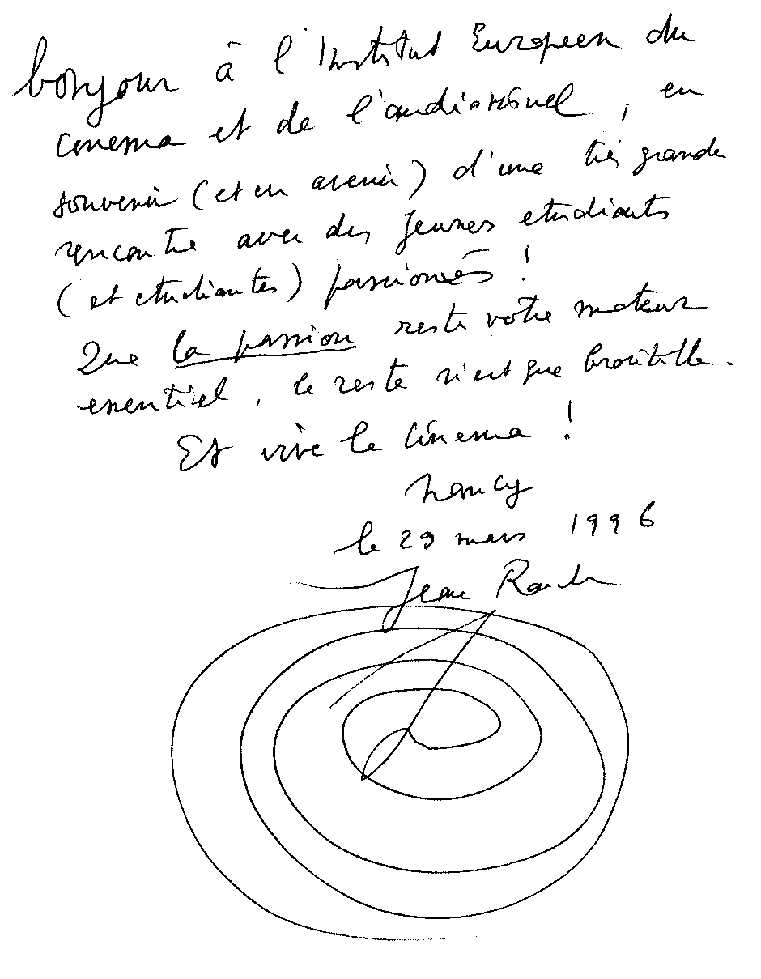 bonjour à l'Institut Européen du
cinema et de l'audiovisuel, en
souvenir (et en avenir) d'une très grande
rencontre avec des jeunes etudiants
(et etudiantes) passionnés !
Que la passion reste votre moteur
essentiel, le reste n'est que broutille.
Et vive le cinéma !
Nancy
le 29 mars 1996
Jean Rouch